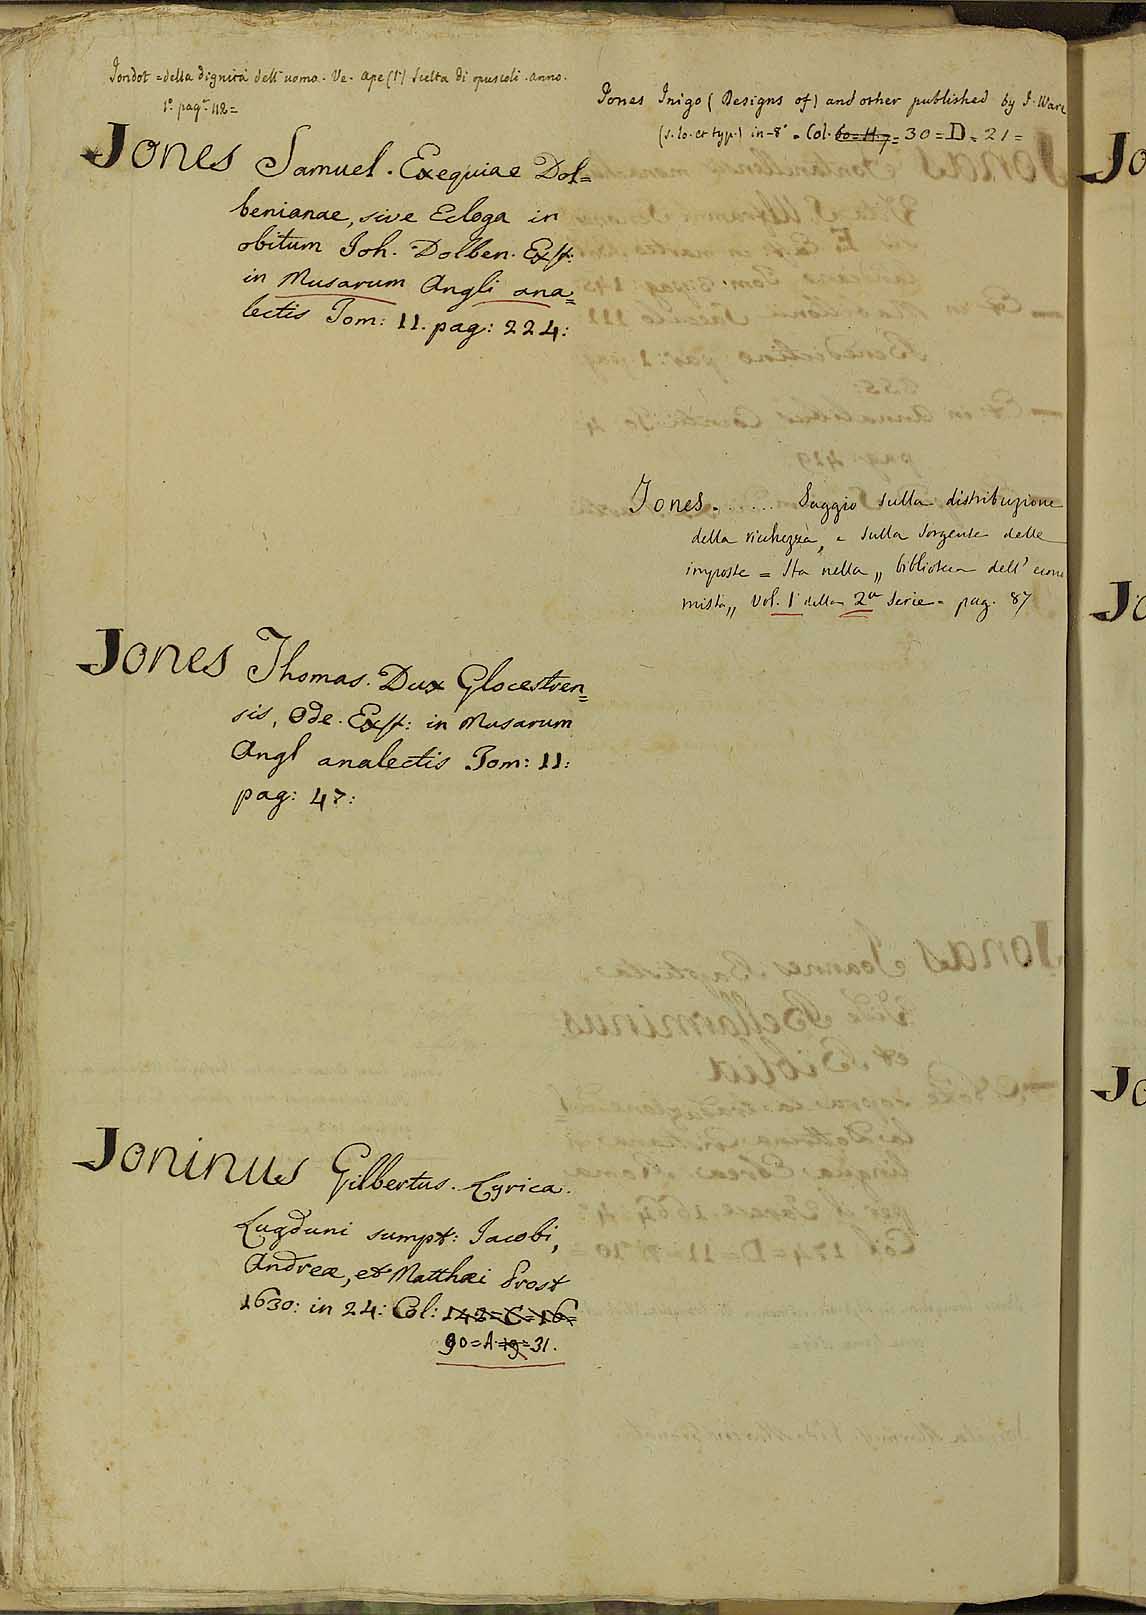 Jondot = della dignità dell'uomo. Ve. Ape (l') scelta di opuscoli. anno.
1.º pag.ª 112=
Jones Samuel. Exequiae Dol=
benianae, sive Ecloga in
obitum Joh. Dolben. Exst:
in Musarum Angli ana=
lectis Tom: 11. pag: 224:
Jones Thomas. Dux Glocestren=
sis, Ode. Exst: in Musarum
Angl analectis Tom: 11:
pag: 47:
Joninus Gilbertus. Lyrica.
Lugduni sumpt: Jacobi,
Andreæ, et Matthæi Prost
1630: in 24: Col: 142=C=16=
90=A=19=31.
Jones Inigo (Designs of) and other published by I. Ware
(s. lo. et typ.) in-8º. Col. 60=H.7= 30=D=21=
Jones....... Saggio sulla distribuzione
della ricchezza, e sulla sorgente delle
imposte = Sta nella „ biblioteca dell' econo
mista „ Vol. 1 della 2ª Serie. pag. 87
Jo
Jo
Jo